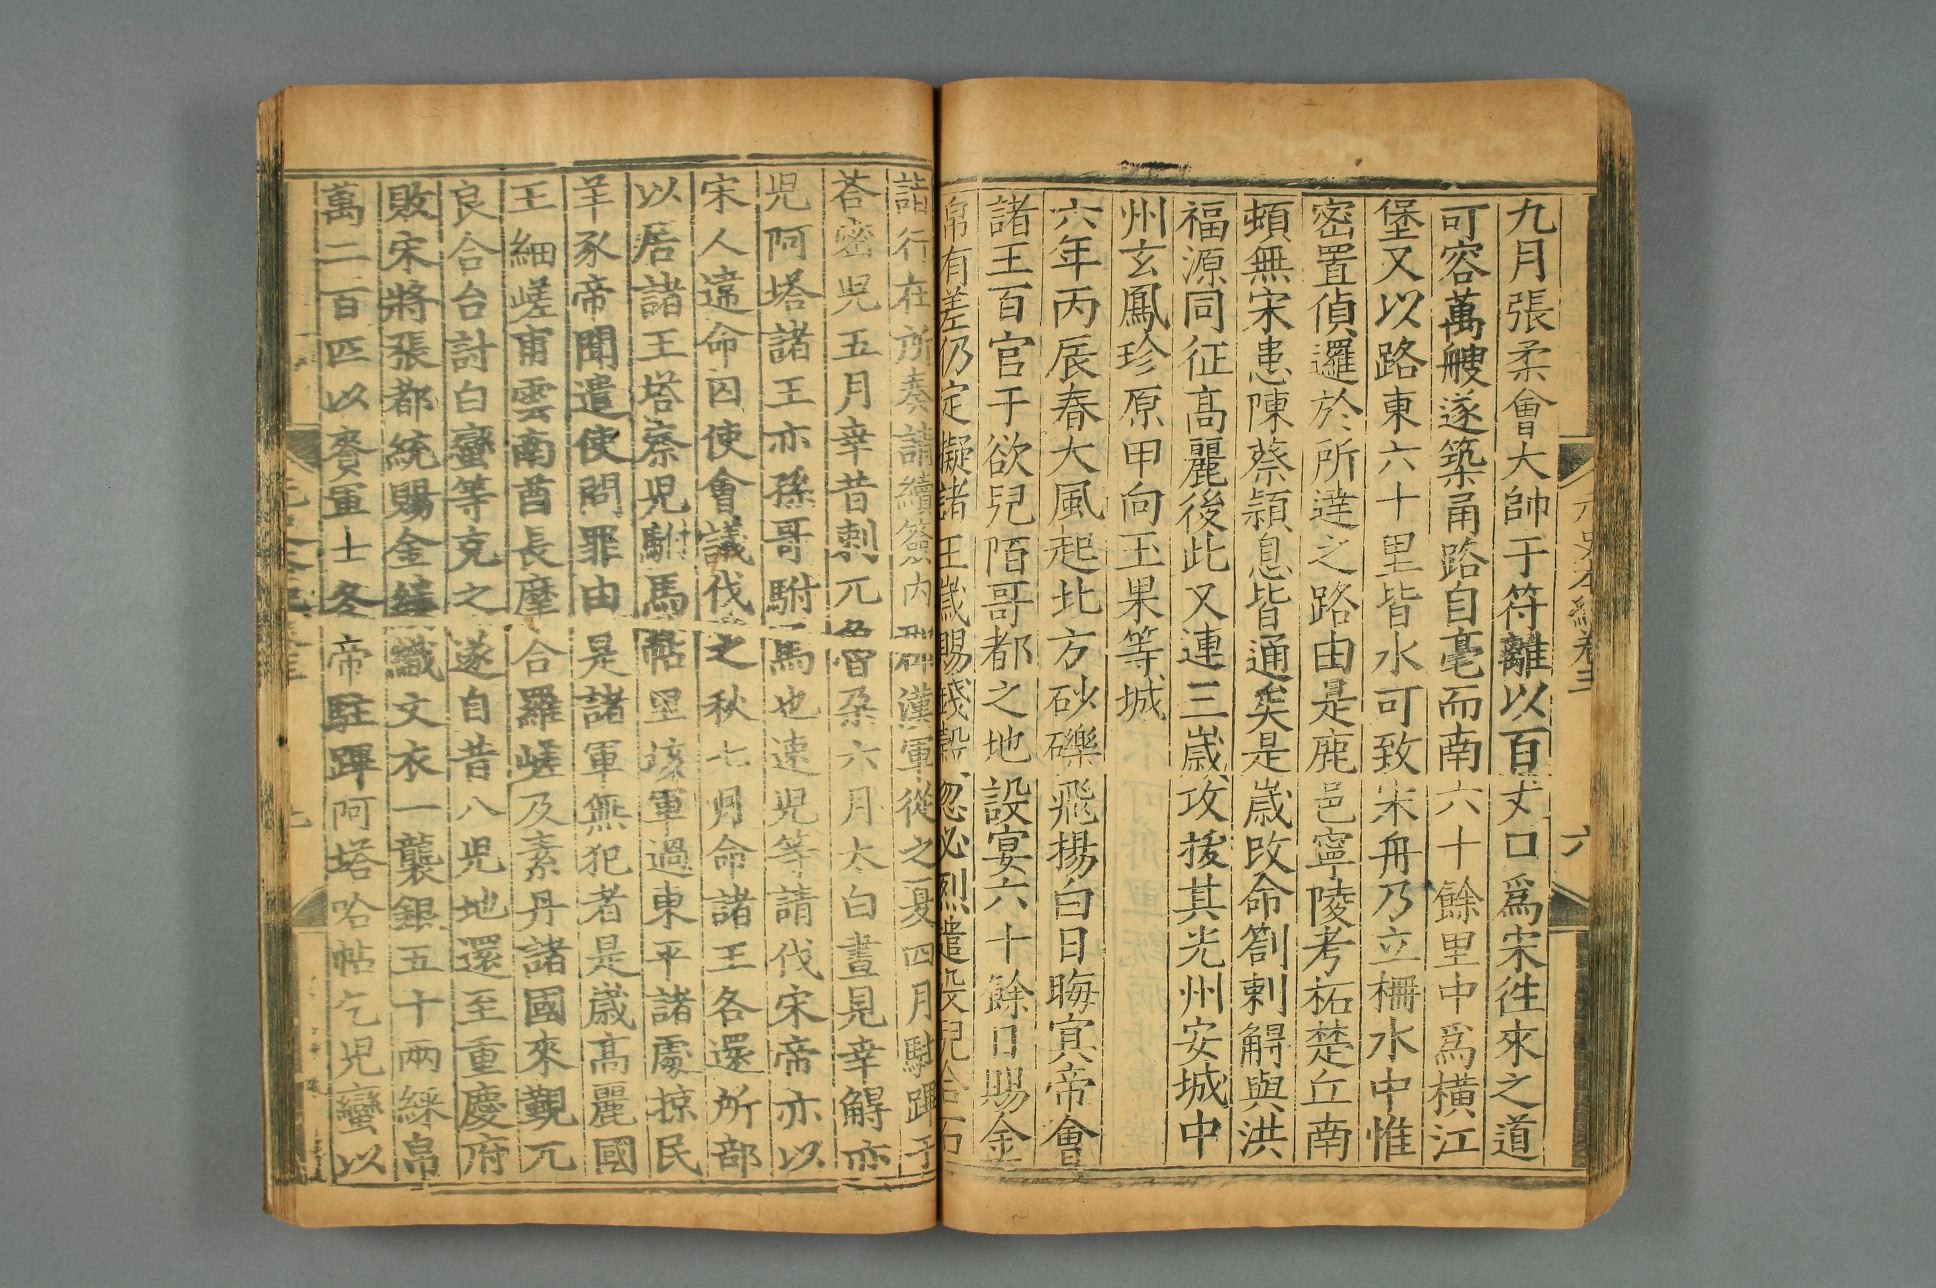 元史本紀卷三 六
九月張柔會大帥于符離以百丈口爲宋往來之道
可容萬艘遂築甬路自亳而南六十餘里中爲橫江
堡又以路東六十里皆水可致宋舟乃立柵水中惟
密置偵邏於所達之路由是鹿邑寧陵考柘楚丘南
頓無宋患陳蔡潁息皆通矣是歲改命劄剌䚟與洪
福源同征高麗後此又連三歲攻拔其光州安城中
州玄鳳珍原甲向玉果等城
六年丙辰春大風起北方砂礫飛揚白日晦冥帝會
諸王百官于欲兒陌哥都之地設宴六十餘日賜金
帛有差仍定擬諸王歲賜錢穀忽必烈遣沒兒合石
詣行在所奏請續簽內郡漢軍從之夏四月駐蹕于
荅密兒五月幸昔剌兀魯朶六月太白晝見幸䚟亦
兒阿塔諸王亦孫哥駙馬也速兒等請伐宋帝亦以
宋人違命囚使會議伐之秋七月命諸王各還所部
以居諸王塔察兒駙馬帖里垓軍過東平諸處掠民
羊豕帝聞遣使問罪由是諸軍無犯者是歲高麗國
王細嵯甫雲南酋長摩合羅嵯及素丹諸國來覲兀
良合台討白蠻等克之遂自昔八兒地還至重慶府
敗宋將張都統賜金縷織文衣一襲銀五十兩綵帛
萬二百匹以賚軍士冬帝駐蹕阿塔哈帖乞兒蠻以